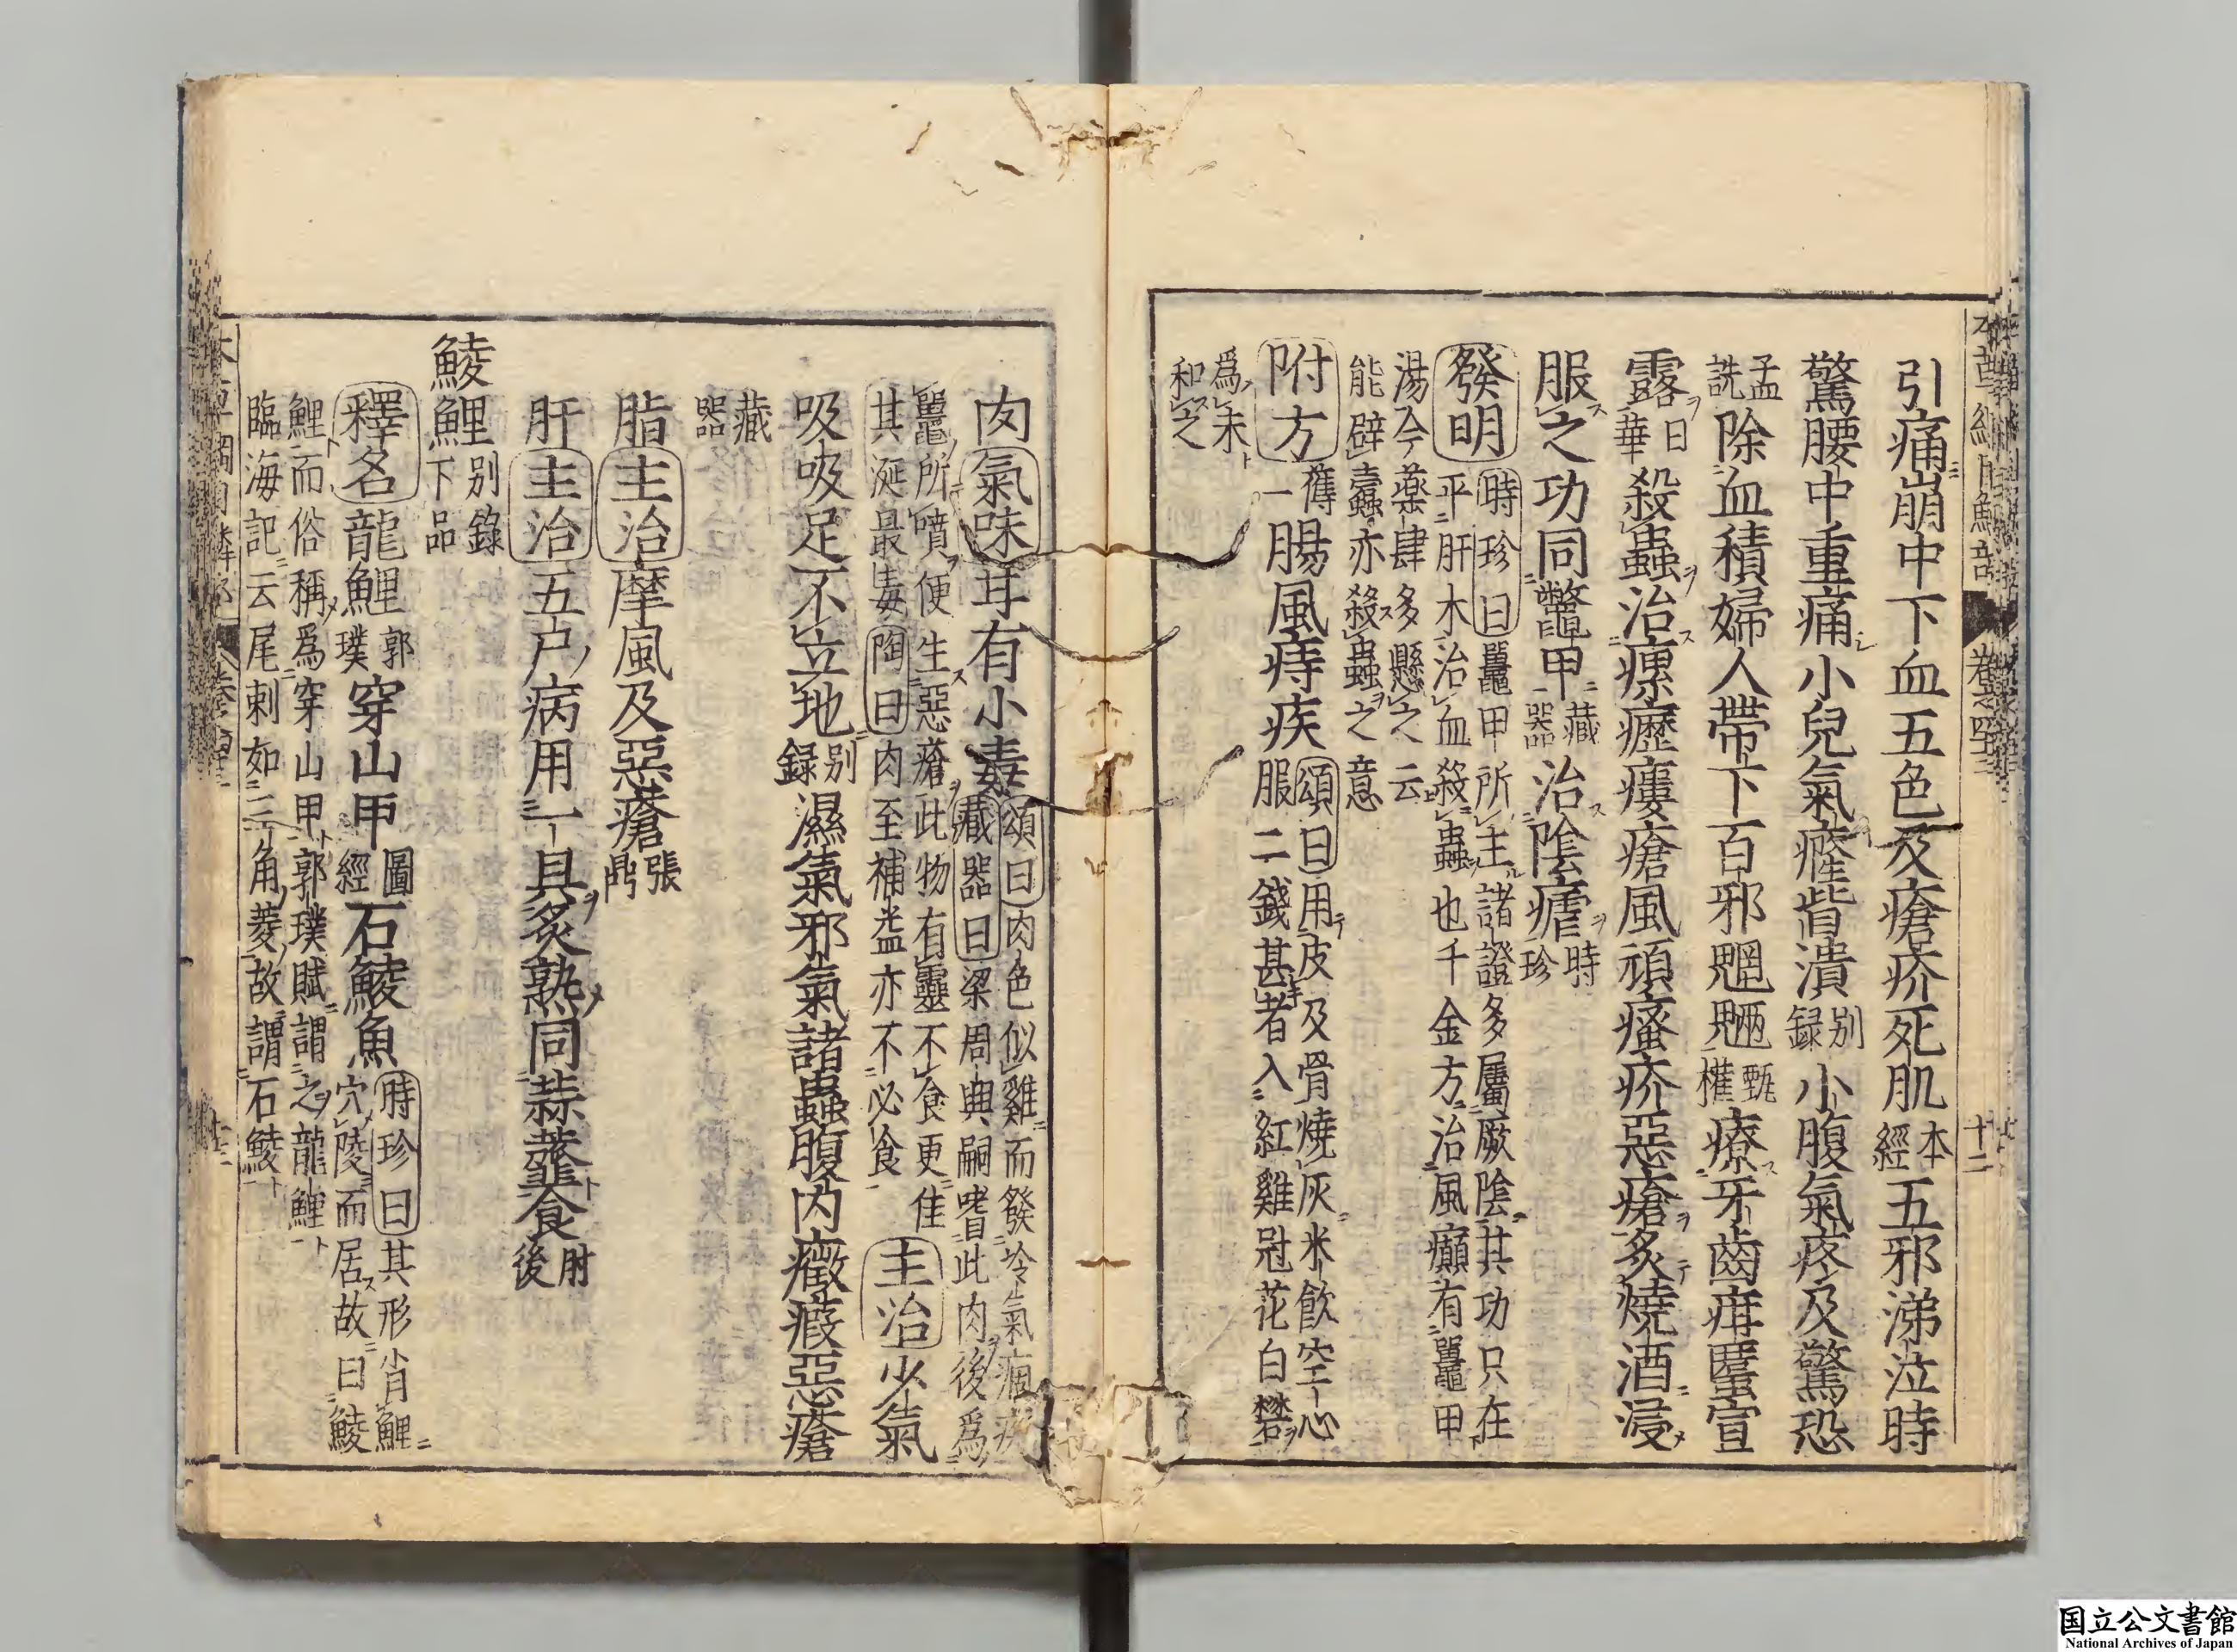 本草綱目鱗部 卷四十三 十二
引痛崩中下血五色及瘡疥死肌本經五邪涕泣時
驚腰中重痛小兒氣癃眥潰别録小腹氣疼及驚恐
孟詵除血積婦人帶下百邪魍魎甄權療牙齒疳䘌宣
露日華殺蟲治瘰癧瘻瘡風頑瘙疥惡瘡炙燒酒浸
服之功同鼈甲藏器治陰瘧時珍
發明時珍曰鼉甲所主諸證多屬厥陰其功只在
平肝木治血殺蟲也千金方治風癲有鼉甲
湯今藥肆多懸之云
能辟蠹亦殺蟲之意
附方舊一腸風痔疾頌曰用皮及骨燒灰米飲空心
服二錢甚者入紅雞冠花白礬
爲末
和之
肉氣味甘有小毒頌曰肉色似雞而發冷氣瘋疾
藏器曰梁周興嗣嗜此肉後爲
鼉所噴便生惡瘡此物有靈不食更佳
其涎最毒陶曰肉至補益亦不必食主治少氣
吸吸足不立地别録濕氣邪氣諸蟲腹内癥瘕惡瘡
藏器
脂主治摩風及惡瘡張鼎
肝主治五尸病用一具炙熟同蒜虀食肘後
鯪鯉别錄下品
釋名龍鯉郭璞穿山甲圖經石鯪魚時珍曰其形肖鯉
穴陵而居故曰鯪
鯉而俗稱爲穿山甲郭璞賦謂之龍鯉
臨海記云尾刺如三角菱故謂石鯪
国立公文書館
National Archives of Japan